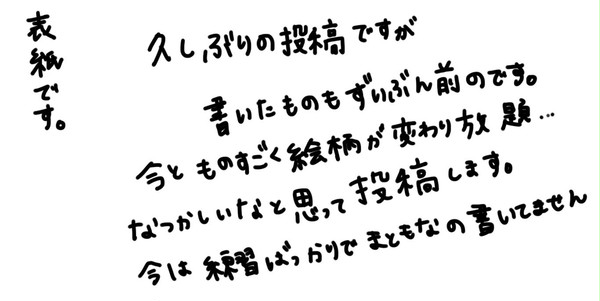 表紙です。
久しぶりの投稿ですが
書いたものもずいぶん前のです。
今とものすごく絵柄が変わり放題…
なつかしいなと思って投稿します。
今は練習ばっかりでまともなの書いてません